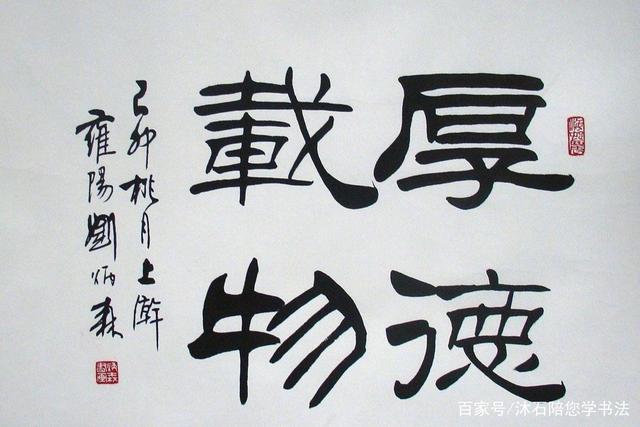 厚德
載物
己卯桃月上澣
雍陽劉炳森
百家号/沐石陪您学书法